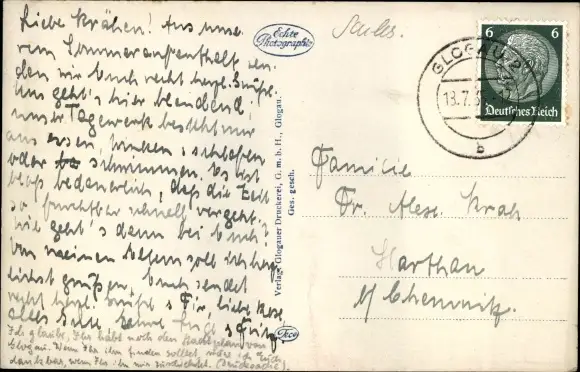 Liebe Krähen! Aus unse-
rem Sommeraufenthalt sen-
den wir Euch recht herzl. Grüße.
Uns geht's hier blendend,
unser Tagewerk besteht nur
aus essen, trinken, schlafen
oder schwimmen. Es ist
bloß bedauerlich, daß die Zeit
so furchtbar schnell vergeht.
Wie geht's denn bei Euch?
Von meinen Eltern soll ich herz-
lichst grüßen. Euch sendet
recht herzl. Grüße + Dir, liebe
alles Gute
Ich glaube, Ihr habt noch den Stadtplan von
Glogau. Wenn Ihr ihn finden solltet, wäre ich Euch
dankbar, wenn Ihr ihn mir zurückschickt. (Drucksache).
Echte
Photographie
Verlag Glogauer Druckerei, G. m. b. H., Glogau.
Ges. gesch.
6 6
Deutsches Reich
GLOGAU
13.7.
b
Familie
Alex. Krah
Harthau
b/ Chemnitz.